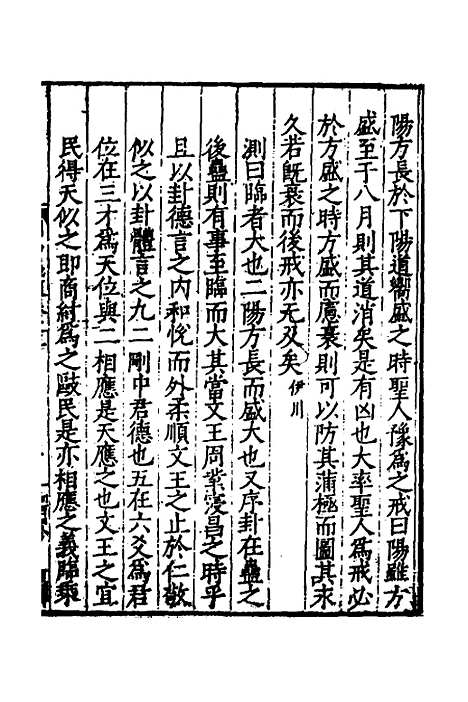 陽方長於下陽道嚮盛之時聖人豫為之戒曰陽雖方
盛至于八月則其道消矣是有凶也大率聖人為戒必
於方盛之時方盛而慮衰則可以防其蒲極而圖其永
久若既衰而後戒亦无及矣伊川
測曰臨者大也二陽方長而盛大也又序卦在蠱之
後蠱則有事至臨而大其當文王周業寖昌之時乎
且以卦德言之内和悅而外柔順文王之止於仁敬
似之以卦體言之九二剛中君德也五在六爻為君
位在三才為天位與二相應是天應之也文王之宜
民得天似之即商紂為之敺民是亦相應之義臨乘